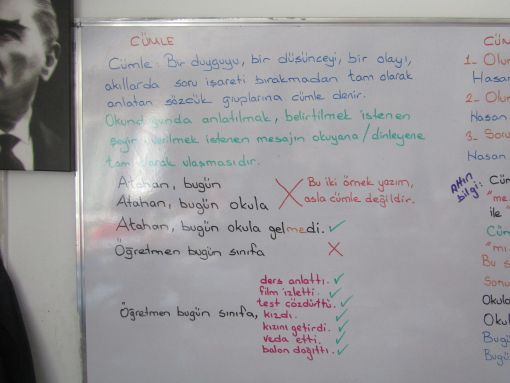 CÜMLE
Cümle: Bir duyguyu, bir düşünceyi, bir olayı,
akıllarda soru işareti bırakmadan tam olarak
anlatan sözcük gruplarına cümle denir.
Okunduğunda anlatılmak, belirtilmek istenen
şeyin, verilmek istenen mesajın okuyana/dinleyene
tam olarak ulaşmasıdır.
Atahan, bugün
Atahan, bugün okula
Bu iki örnek yazım,
asla cümle değildir.
Atahan, bugün okula gelmedi. ✓
Öğretmen bugün sınıfa X
Öğretmen bugün sınıfa,
ders anlattı. ✓
film izletti. ✓
test çözdürttü. ✓
kızdı. ✓
kızını getirdi. ✓
veda etti. ✓
balon dağıttı. ✓
CÜM
1- Olum
Hasan
2- Olum
Hasan
3- Soru
Hasan
Altın bilgi:
Cüm
"me
ile "
Cüm
"mı
Bu s
Sonu
Okula
Okul
Bugü
Bugü